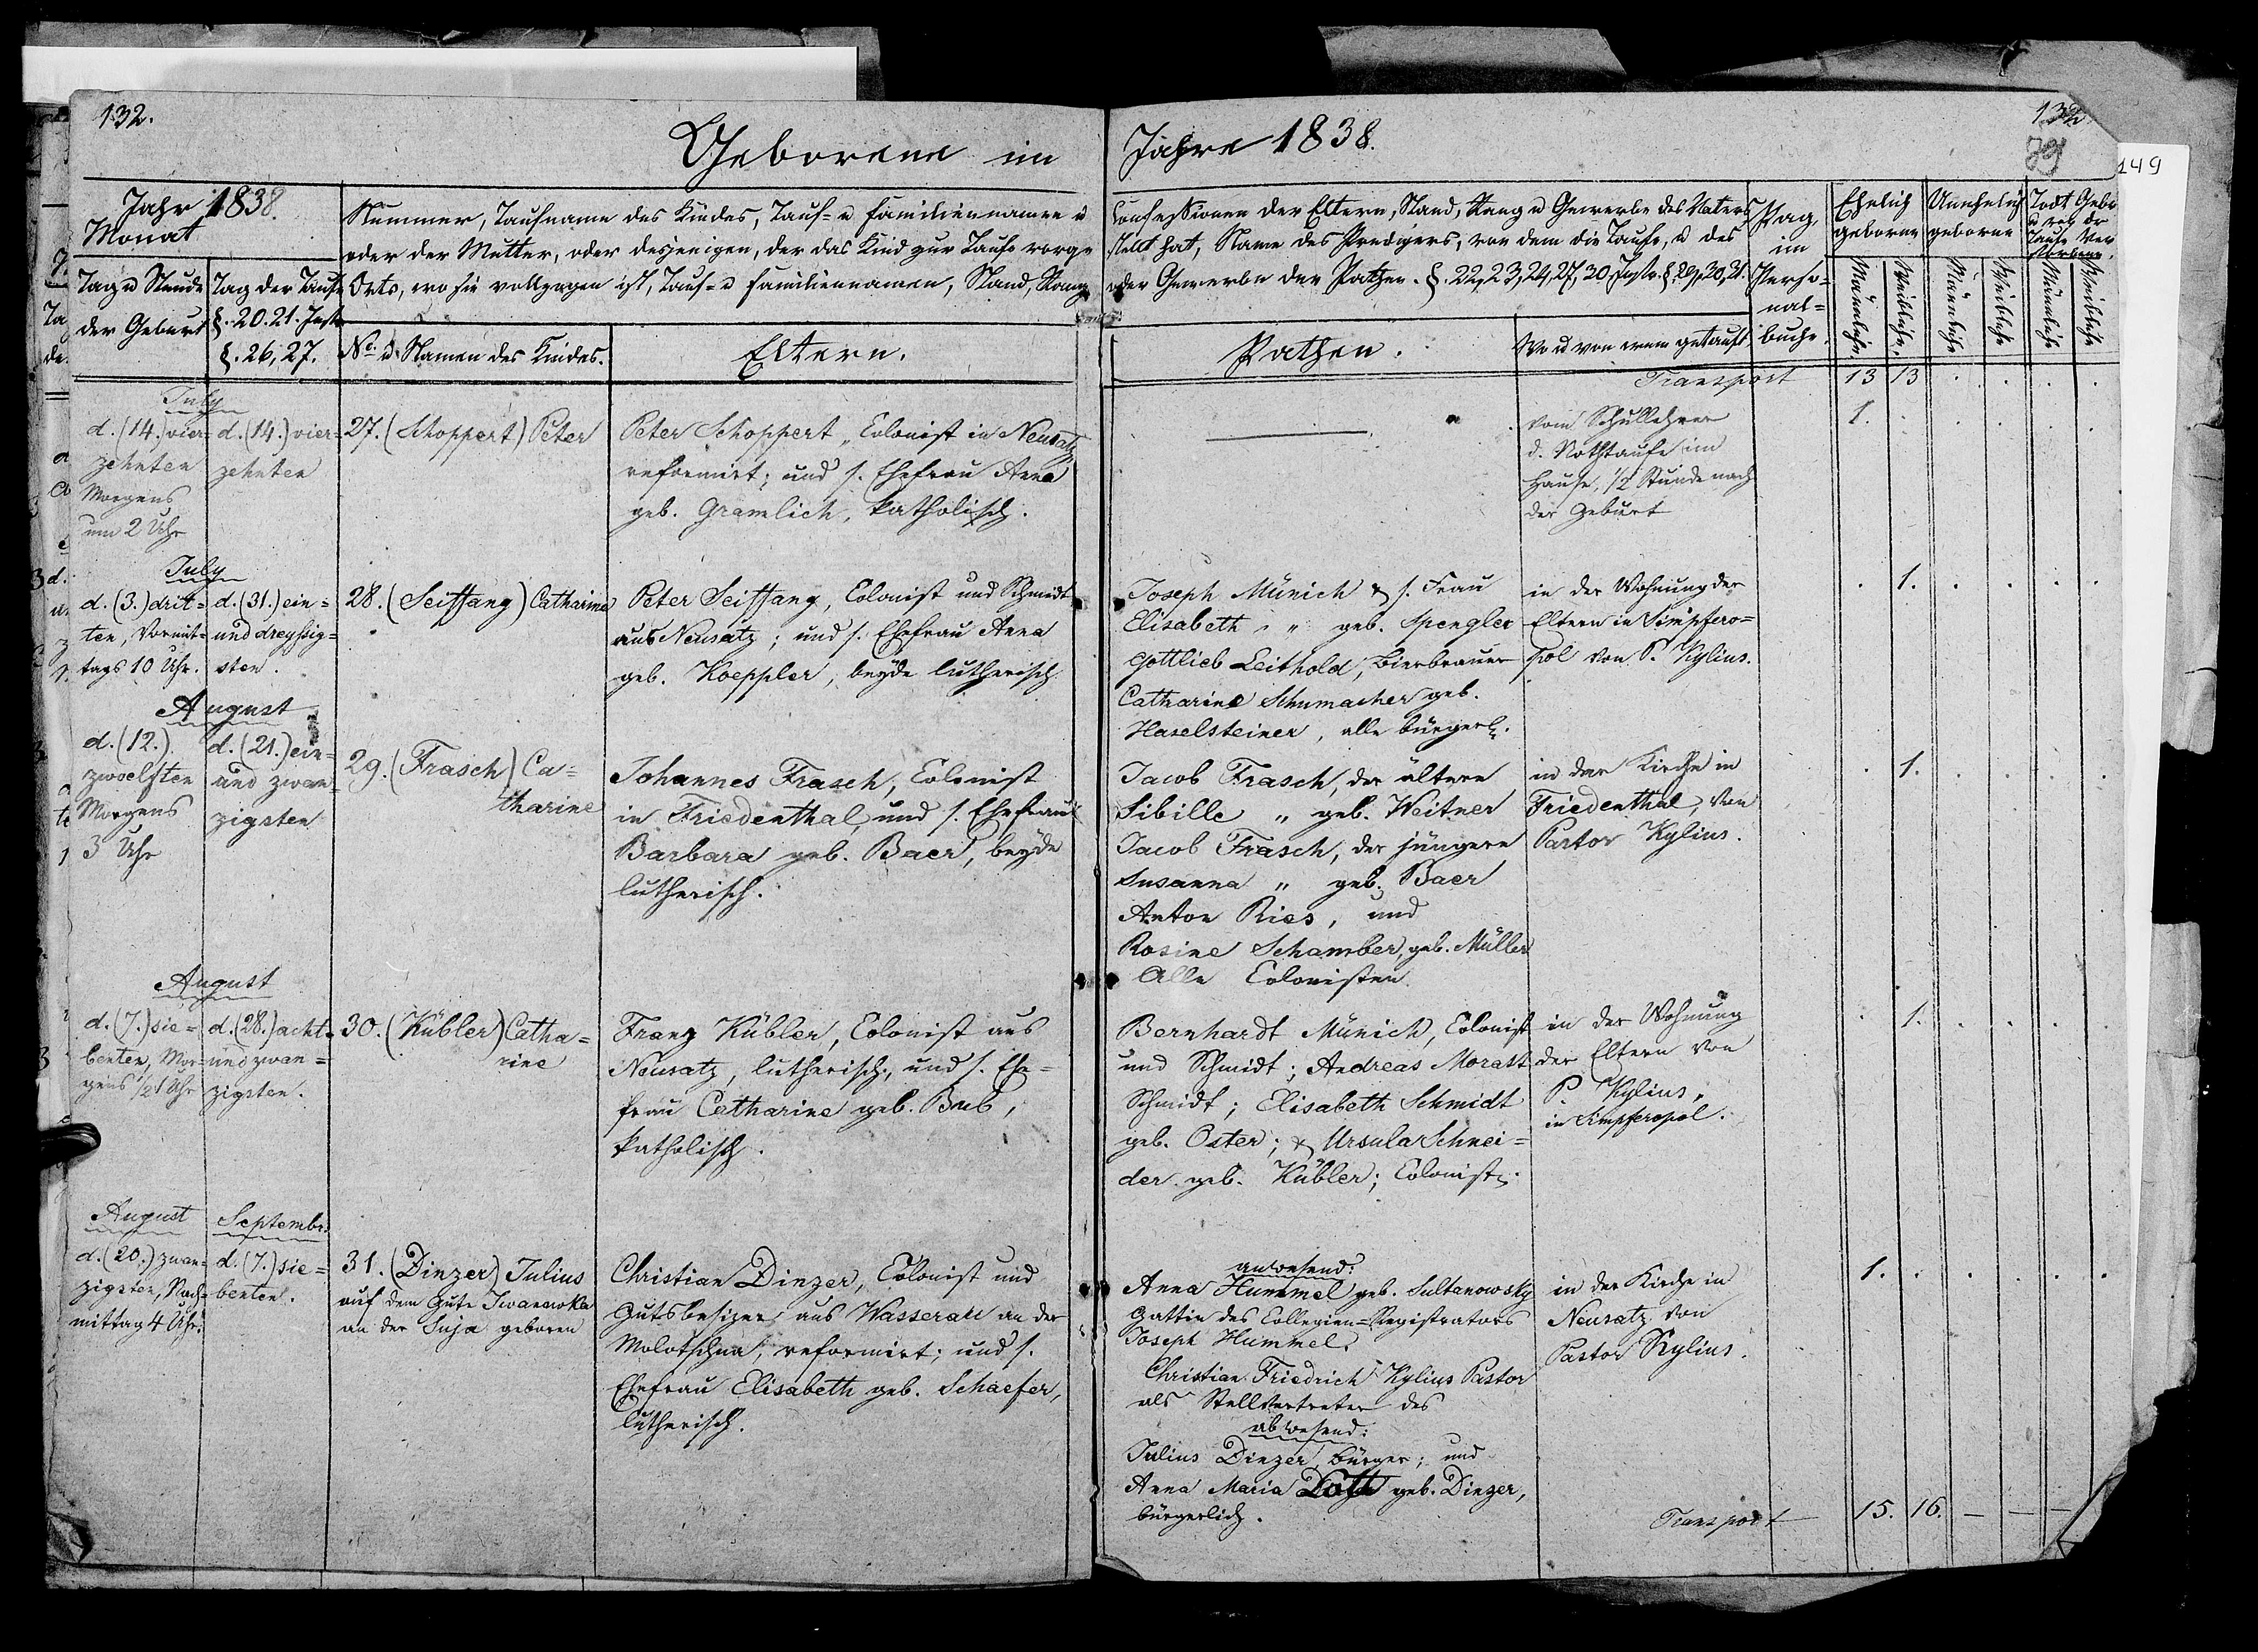 132.
Geborene im
Jahre 1838.
79
149
Jahr 1838.
Monat
Tag u Stunde
der Geburt
Tag der Taufe
§. 20. 21. Instr.
§. 26, 27.
Nummer, Taufname des Kindes, Tauf- u Familiennamen u
oder der Mutter, oder desjenigen, der das Kind zur Taufe vorge
Orts, wo sie vollzogen ist, Tauf- u Familiennamen, Stand, Rang
No. u. Namen des Kindes.
Eltern.
Confessionen der Eltern, Stand, Rang u Gewerbe des Vaters
stellt hat, Name des Predigers, von dem die Taufe, u des
oder Gewerbe der Pathen. §. 22, 23, 24, 27, 30 Instr. §. 29, 30, 31.
Pathen.
Wo u von wem getauft
Pag.
im
Perso-
nal-
buche.
Ehelich
geborne
Unehelich
geborne
Todt Geb.
u vor der
Taufe Ver
storbene.
Männliche
Weibliche
Männliche
Weibliche
Männliche
Weibliche
Transport 13 13 . . . .
July
d. (14.) vier-
zehnten
Morgens
um 2 Uhr
d. (14.) vier-
zehnten
27. (Schoppert) Peter
Peter Schoppert, Colonist in Neusatz,
reformirt; und s. Ehefrau Anna
geb. Gramlich, katholisch.
vom Schullehrer
d. Nothtaufe im
Hause, 1/2 Stunde nach
der Geburt
1. . . . . .
July
d. (3.) drit-
ten, Vormit-
tags 10 Uhr.
d. (31.) ein-
und dreyssig-
sten.
28. (Seiffang) Catharine
Peter Seiffang, Colonist und Schmidt
aus Neusatz; und s. Ehefrau Anna
geb. Koeppler, beyde lutherisch
Joseph Münich & s. Frau
Elisabeth " geb. Spengler
Gottlieb Leithold, Bierbrauer
Catharine Schumacher geb.
Haselsteiner, alle bürgerl.
in der Wohnung der
Eltern in Simpfero-
pol von P. Kylius.
. 1. . . . .
August
d. (12.)
zwoelften
Morgens
3 Uhr
d. (21.) ein-
und zwan-
zigsten
29. (Frasch) Ca-
tharine
Johannes Frasch, Colonist
in Friedenthal, und s. Ehefrau
Barbara geb. Baer, beyde
lutherisch.
Jacob Frasch, der ältere
Sibille " geb. Weitner
Jacob Frasch, der jüngere
Susanna " geb. Baer
Anton Ries, und
Rosine Schamber, geb. Müller
Alle Colonisten.
in der Kirche in
Friedenthal, von
Pastor Kylius.
. 1. . . . .
August
d. (7.) sie-
benten, Mor-
gens 1/2 1 Uhr
d. (28.) acht-
und zwan-
zigsten.
30. (Kübler) Catha-
rine
Franz Kübler, Colonist aus
Neusatz, lutherisch, und s. Ehe-
frau Catharine geb. Bub,
katholisch.
Bernhardt Münich, Colonist
und Schmidt; Andreas Morast
Schmidt; Elisabeth Schmidt
geb. Oster; & Ursula Schnei-
der geb. Kübler; Colonist.
in der Wohnung
der Eltern von
P. Kylius,
in Simpferopol.
. 1. . . . .
August
d. (20.) zwan-
zigsten, Nach-
mittag 4 Uhr.
Septembr.
d. (7.) sie-
benten.
31. (Dinzer) Julius
auf dem Gute Iwanowka
an der Suja geboren
Christian Dinzer, Colonist und
Gutsbesizer aus Wasserau an der
Molotschna, reformirt; und s.
Ehefrau Elisabeth geb. Schaefer,
lutherisch.
anwesend:
Anna Hummel geb. Sultanowsky
Gattin des Collegien-Registrators
Joseph Hummel.
Christian Friedrich Kylius Pastor
als Stellvertreter des
abwesend:
Julius Dinzer, Bürger; und
Anna Maria geb. Dinzer,
bürgerlich.
in der Kirche in
Neusatz von
Pastor Kylius.
1. . . . . .
Transport 15. 16. — — —